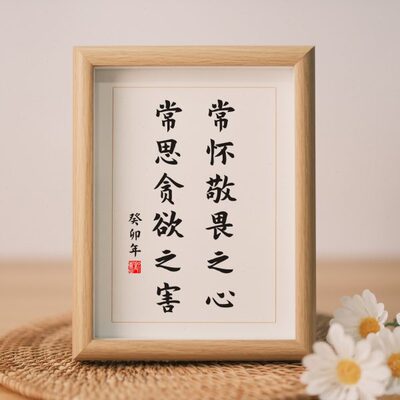 常怀敬畏之心
常思贪欲之害
癸卯年